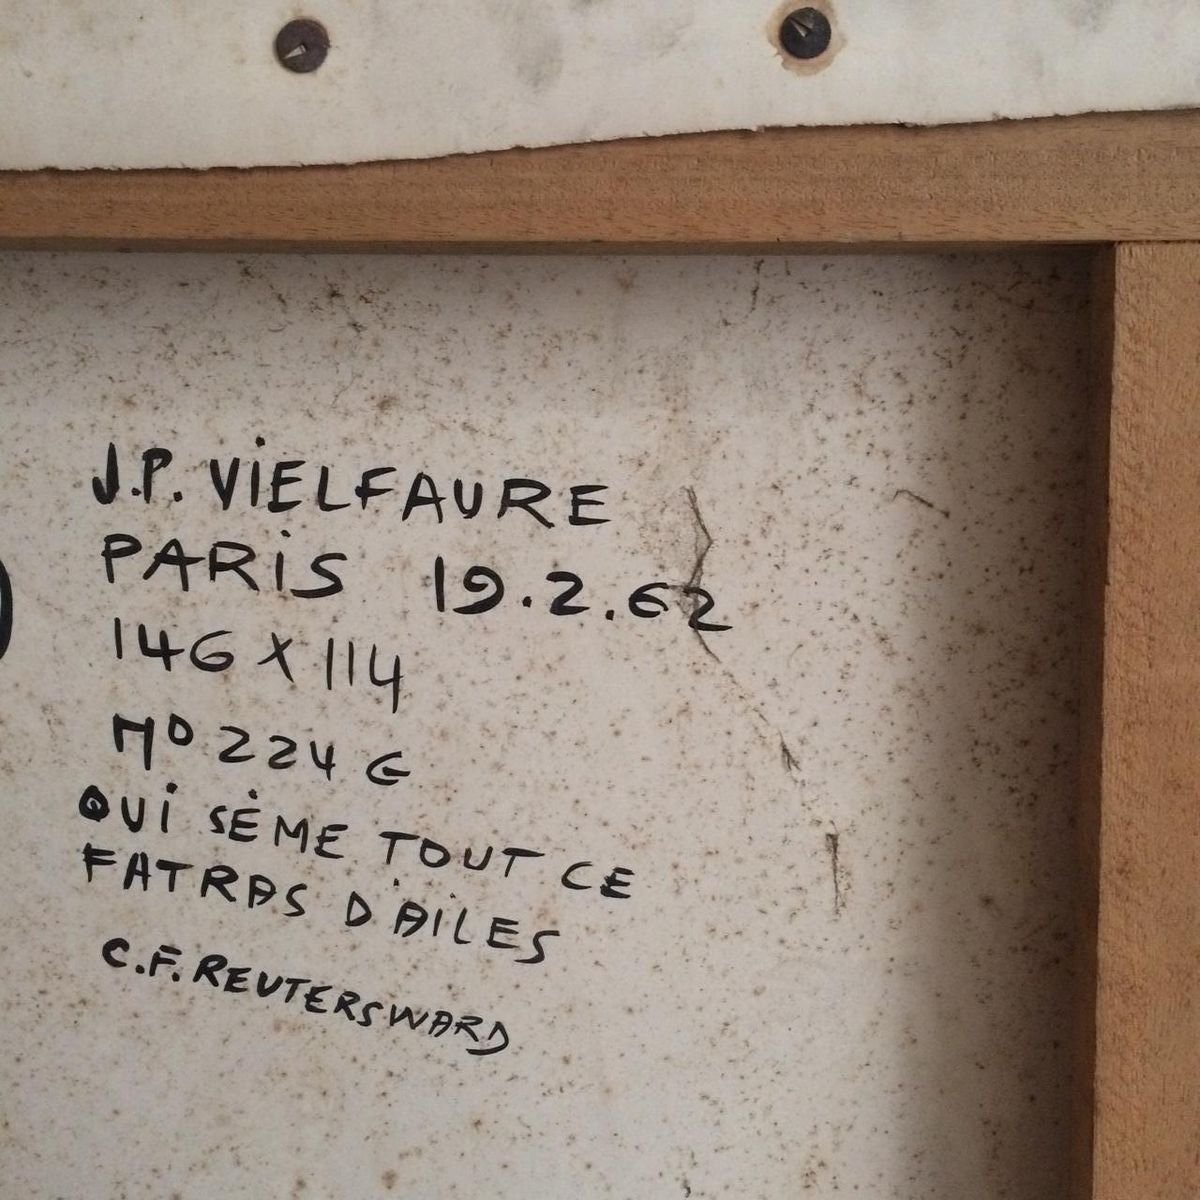 J.P. ViELFAURE
PARiS 19.2.62
146 X 114
NO 224 G
QUi SÈME TOUT CE
FATRAS D'AiLES
C.F. REUTERSWARD